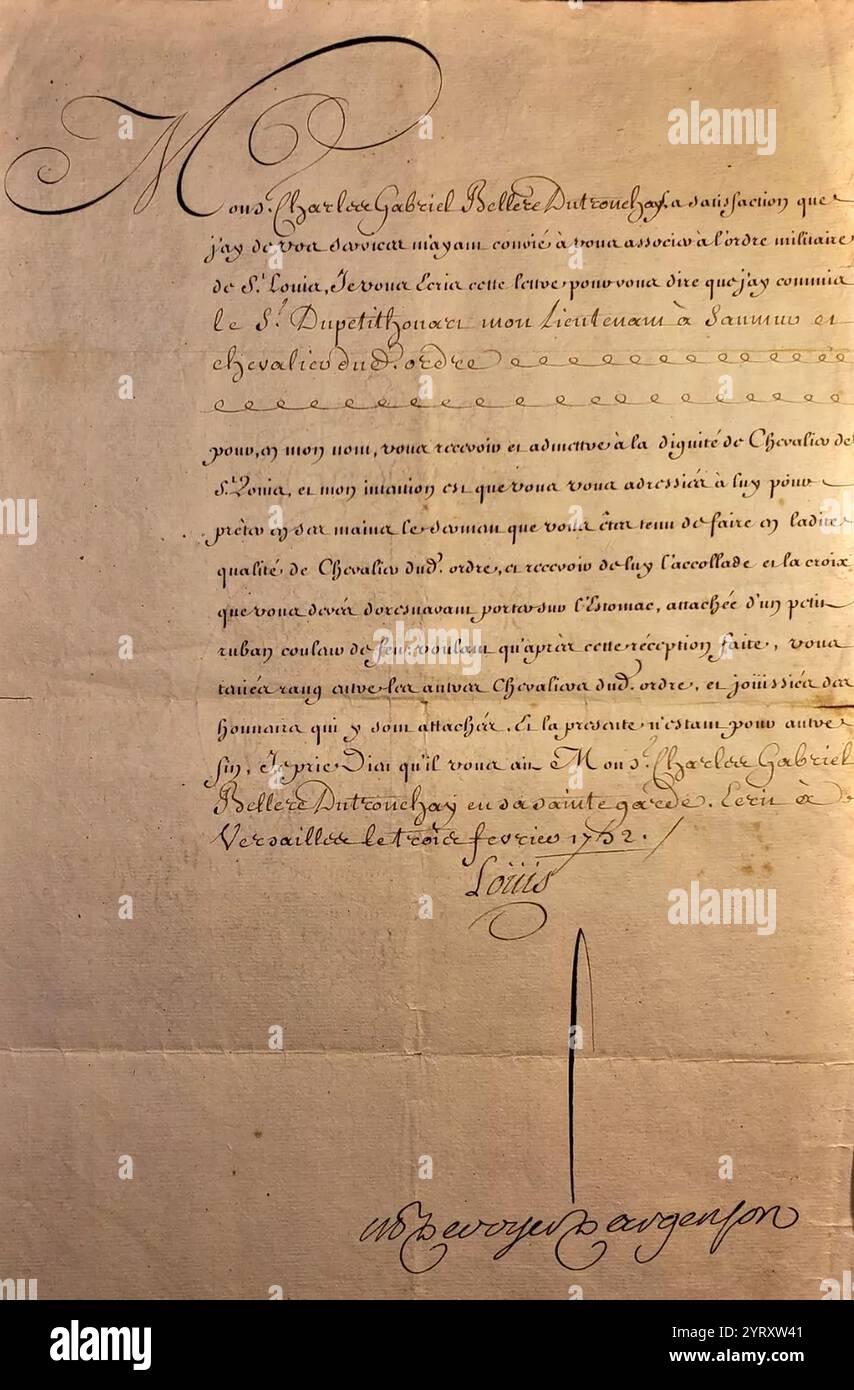 Mons.r Charles Gabriel Bellere Dutronchay. La satisfaction que
j'ay de vos services m'ayant convié à vous associer à l'ordre militaire
de S.t Louis, Je vous Ecris cette lettre pour vous dire que j'ay commis
le S.r Dupetithouars mon Lieutenant à Saumur et
chevalier dud.t ordre
pour, en mon nom, vous recevoir et admettre à la dignité de Chevalier de
S.t Louis, et mon intention est que vous vous adressiés à luy pour
prêter en ses mains le serment que vous êtes tenu de faire en ladite
qualité de Chevalier dud.t ordre, et recevoir de luy l'accollade et la croix
que vous devés doresnavant porter sur l'Estomac, attachée d'un petit
ruban couleur de feu: voulant qu'après cette réception faite, vous
teniés rang entre les autres Chevaliers dud.t ordre, et joüissiés des
honneurs qui y sont attachés. Et la presente n'estant pour autre
fin, Je prie Dieu qu'il vous ait Mons.r Charles Gabriel
Bellere Dutronchay en sa sainte garde. Ecrit à
Versailles le trois fevrier 1752.
Loüis
M P De voyer D'argenson
alamy
Image ID: 2YRXW41
www.alamy.com